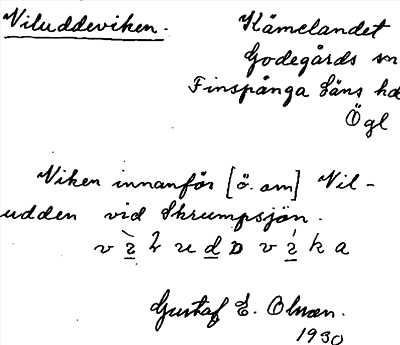 Viluddeviken. Kämelandet
Godegårds sn
Finspånga läns hd
Ögl
Viken innanför [ö. om] Vil-
udden vid Skrumpsjön.
Gustaf E. Olsson.
1930